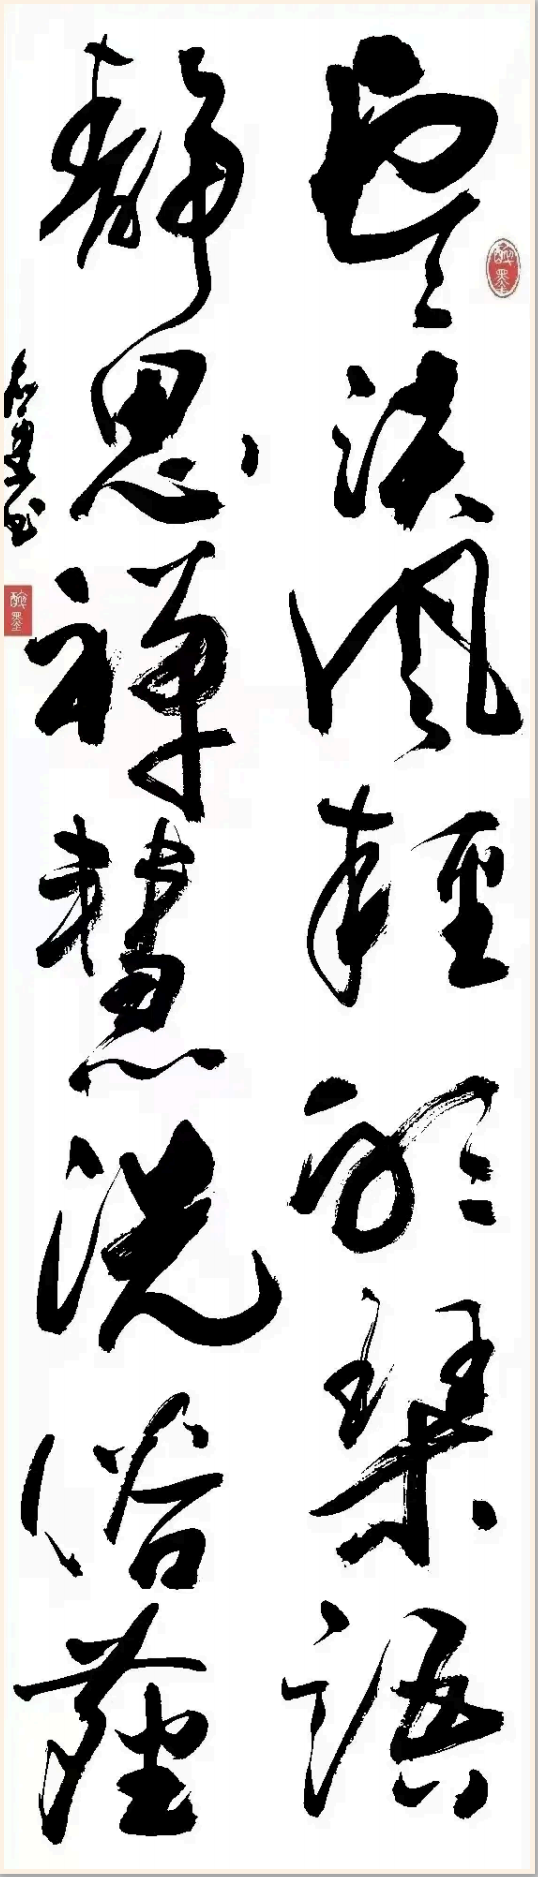 雲淡風輕聽琴語
靜思禪慧洗俗塵